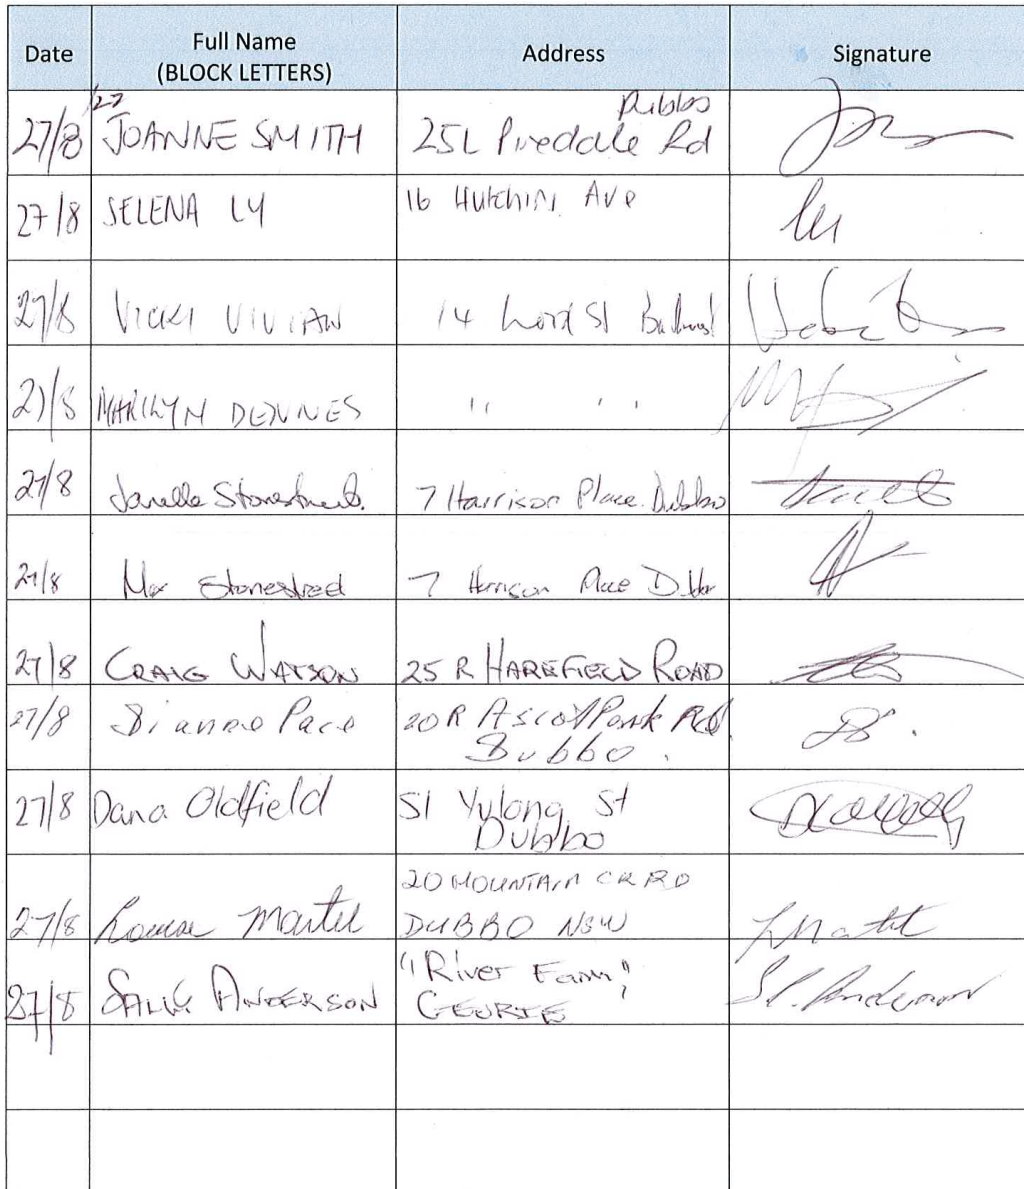 Date Full Name Address Signature
(BLOCK LETTERS)
27/8 /22 JOANNE SMITH 25L Pinedale Rd Dubbo
27/8 SELENA LY 16 Hutchins Ave
27/8 VICKI VIVIAN 14 Lord St
27/8 MARILYN DENNES " "
27/8 Janelle Stonestreet 7 Harrison Place Dubbo
27/8 Max Stonestreet 7 Harrison Place Dubbo
27/8 CRAIG WATSON 25 R HAREFIELD ROAD
27/8 Dianne Pace 20R Ascot Park Rd
Dubbo.
27/8 Dana Oldfield 51 Yulong St
Dubbo
20 MOUNTAIN
27/8 Louise Martel DUBBO NSW
27/8 SALLY ANDERSON "River Farm"
GEURIE S. Anderson